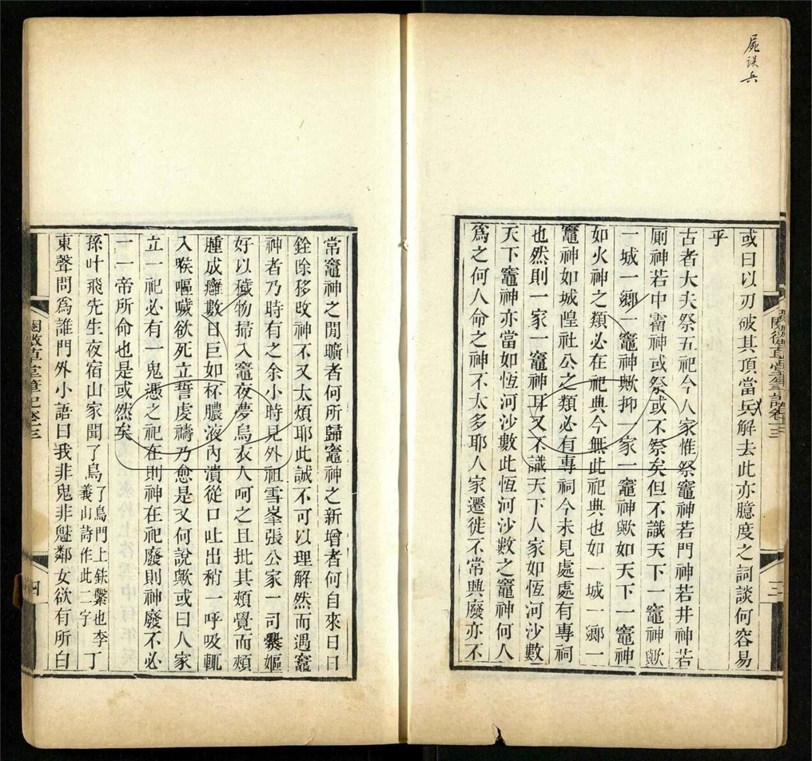 屍误兵
或曰以刃破其頂當兵解去此亦臆度之詞談何容易
乎
古者大夫祭五祀今人家惟祭竈神若門神若井神若
厠神若中霤神或祭或不祭矣但不識天下一竈神歟
一城一鄉一竈神歟抑一家一竈神歟如天下一竈神
如火神之類必在祀典今無此祀典也如一城一鄉一
竈神如城隍社公之類必有專祠今未見處處有專祠
也然則一家一竈神耳又不識天下人家如恆河沙數
天下竈神亦當如恆河沙數此恆河沙數之竈神何人
爲之何人命之神不太多耶人家遷徙不常興廢亦不
三
常竈神之閒曠者何所歸竈神之新增者何自來日日
銓除移改神不又太煩耶此誠不可以理解然而遇竈
神者乃時有之余小時見外祖雪峯張公家一司爨嫗
好以穢物掃入竈夜夢烏衣人呵之且批其頰覺而頰
腫成癰數日巨如杯膿液內潰從口吐出稍一呼吸輒
入喉嘔噦欲死立誓虔禱乃愈是又何說歟或曰人家
立一祀必有一鬼憑之祀在則神在祀廢則神廢不必
一一帝所命也是或然矣
孫叶飛先生夜宿山家聞了鳥了鳥門上鉄繫也李義山詩作此二字丁
東聲問爲誰門外小語曰我非鬼非魅鄰女欲有所白
閱微草堂筆記卷三
四